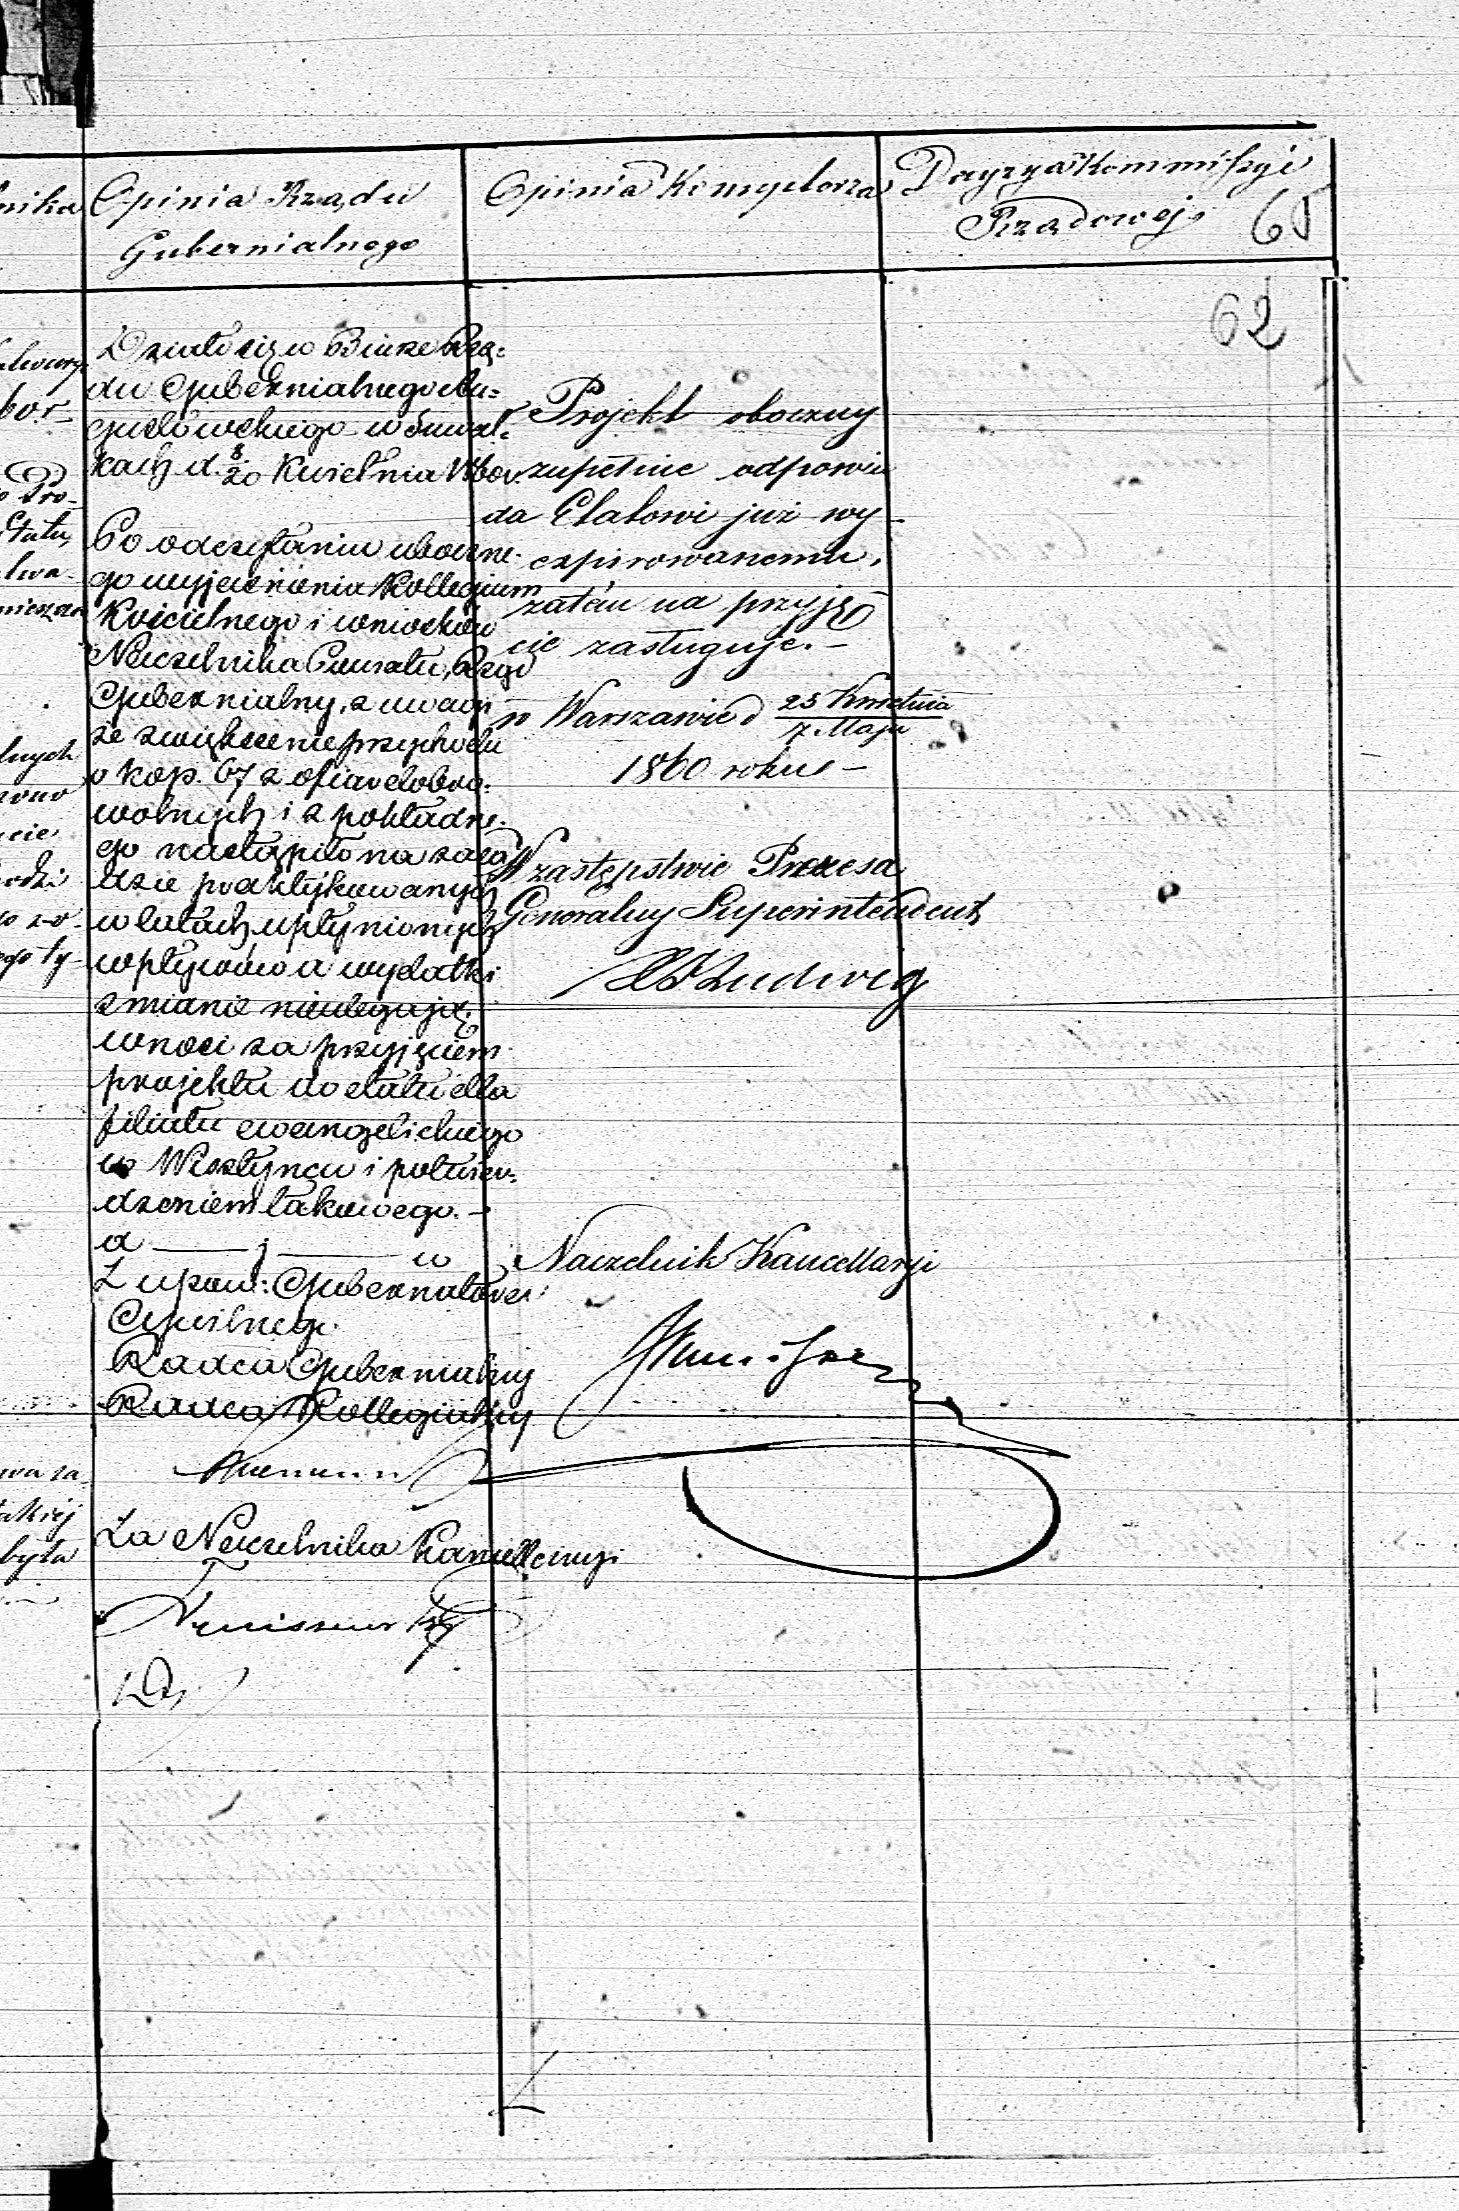 nika
Opinia Rządu
Gubernialnego
Opinia Konsystorza
Decyzya Kommissyi
Rządowej
62
bor-
o Pro-
Etatu,
lnych
cie
akiej
była
Działo się w Biurze Rzą-
du Gubernialnego Au-
gustowskiego w Suwał-
kach d. 8/20 Kwietnia 1860 r.
Po odczytaniu uboczne-
go wyjaśnienia Kollegium
Kościelnego i wniosków
Naczelnika Powiatu, Rząd
Gubernialny, z uwagi
że zwiększenie przychodu
o kop. 67 z ofiar dobro-
wolnych i z pokładne-
go nastąpiło na zasa-
dzie praktykowanych
w latach upłynionych
wpływów a wydatki
zmianie nieulegają,
wnosi za przyjęciem
projektu do etatu dla
filiału ewangelickiego
w Wisztyńcu i potwier-
dzeniem takowego.-
d — j — w
Z upow: Gubernatora
Cywilnego
Radca Gubernialny
Radca Kollegialny
Za Naczelnika Kancellaryi
Projekt oboczny
zupełnie odpowia
da Etatowi już wy-
expirowanemu,
zatém na przyję-
cie zasługuje.-
w Warszawie d 25 Kwietnia / 7. Maja
1860 roku -
W zastępstwie Prezesa
Generalny Superintendent
Ludwig
Naczelnik Kancellaryi